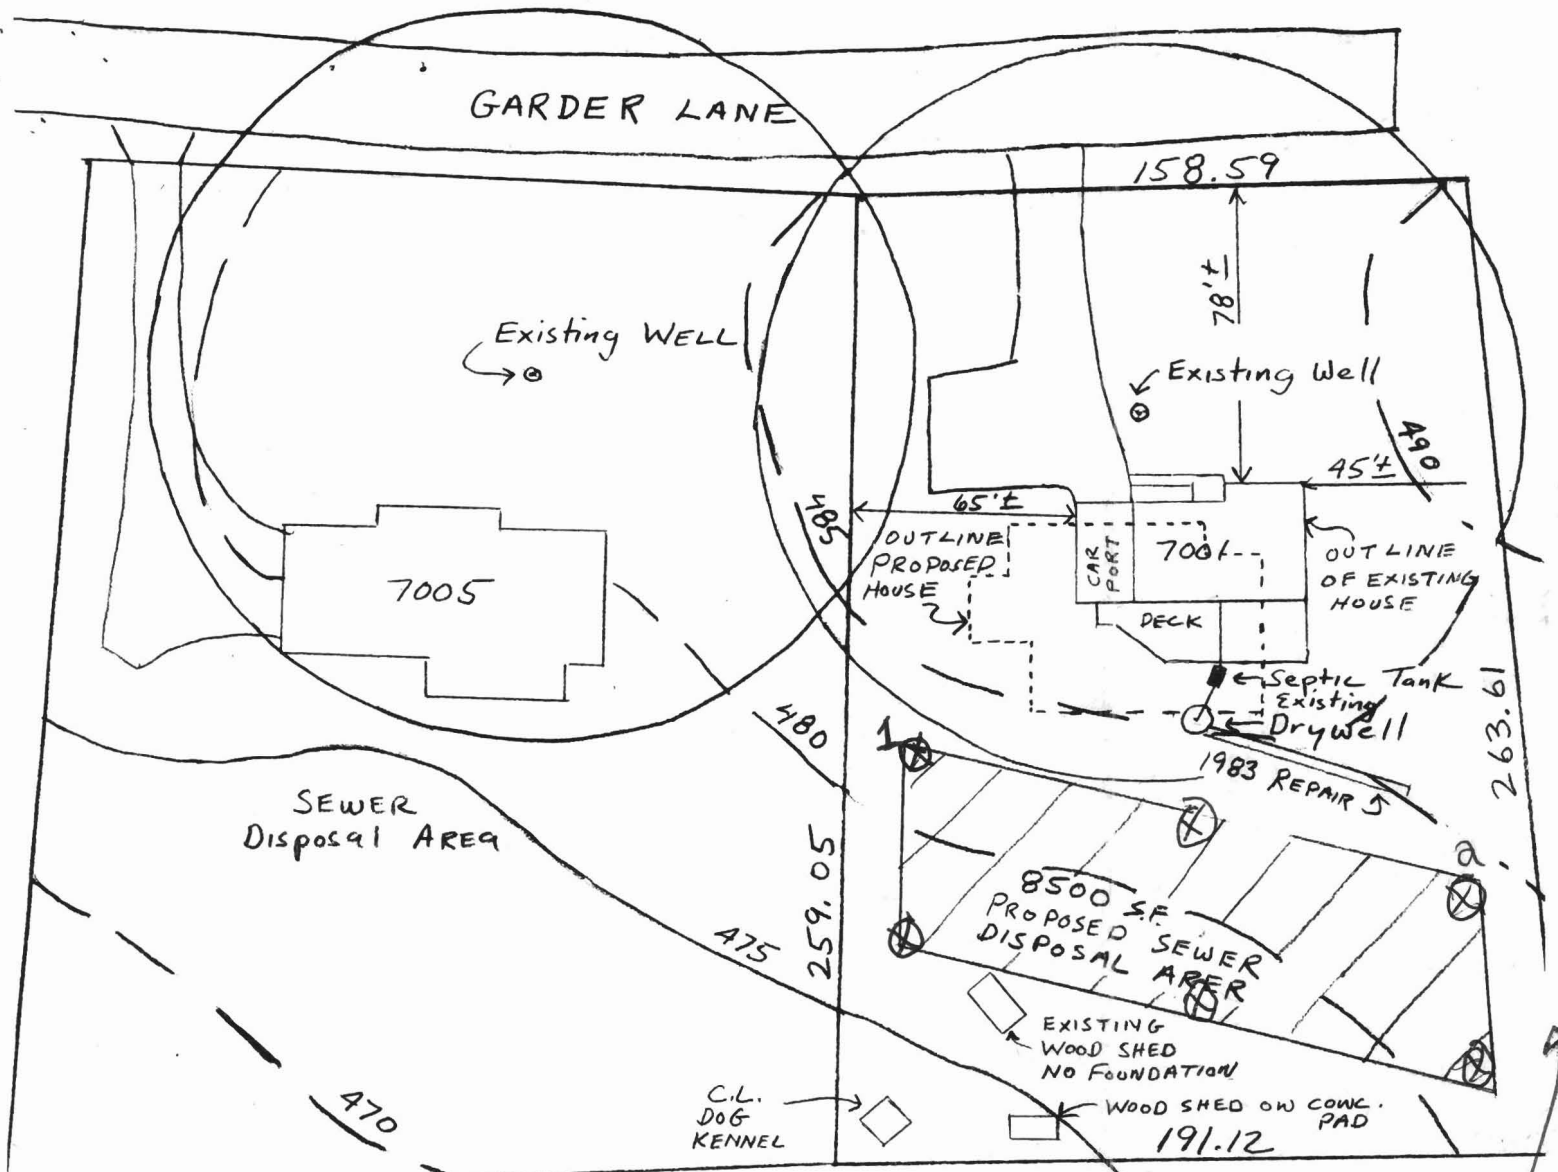 GARDER LANE
158.59
78'±
Existing WELL
Existing Well
490
45'±
65'±
485
OUTLINE
PROPOSED
HOUSE
CAR
PORT
7001
OUTLINE
OF EXISTING
HOUSE
7005
DECK
Septic Tank
Existing
Drywell
263.61
480
1
1983 REPAIR
SEWER
Disposal AREA
259.05
2
8500 S.F.
PROPOSED SEWER
DISPOSAL AREA
475
EXISTING
WOOD SHED
NO FOUNDATION
470
C.L.
DOG
KENNEL
WOOD SHED ON CONC.
PAD
191.12